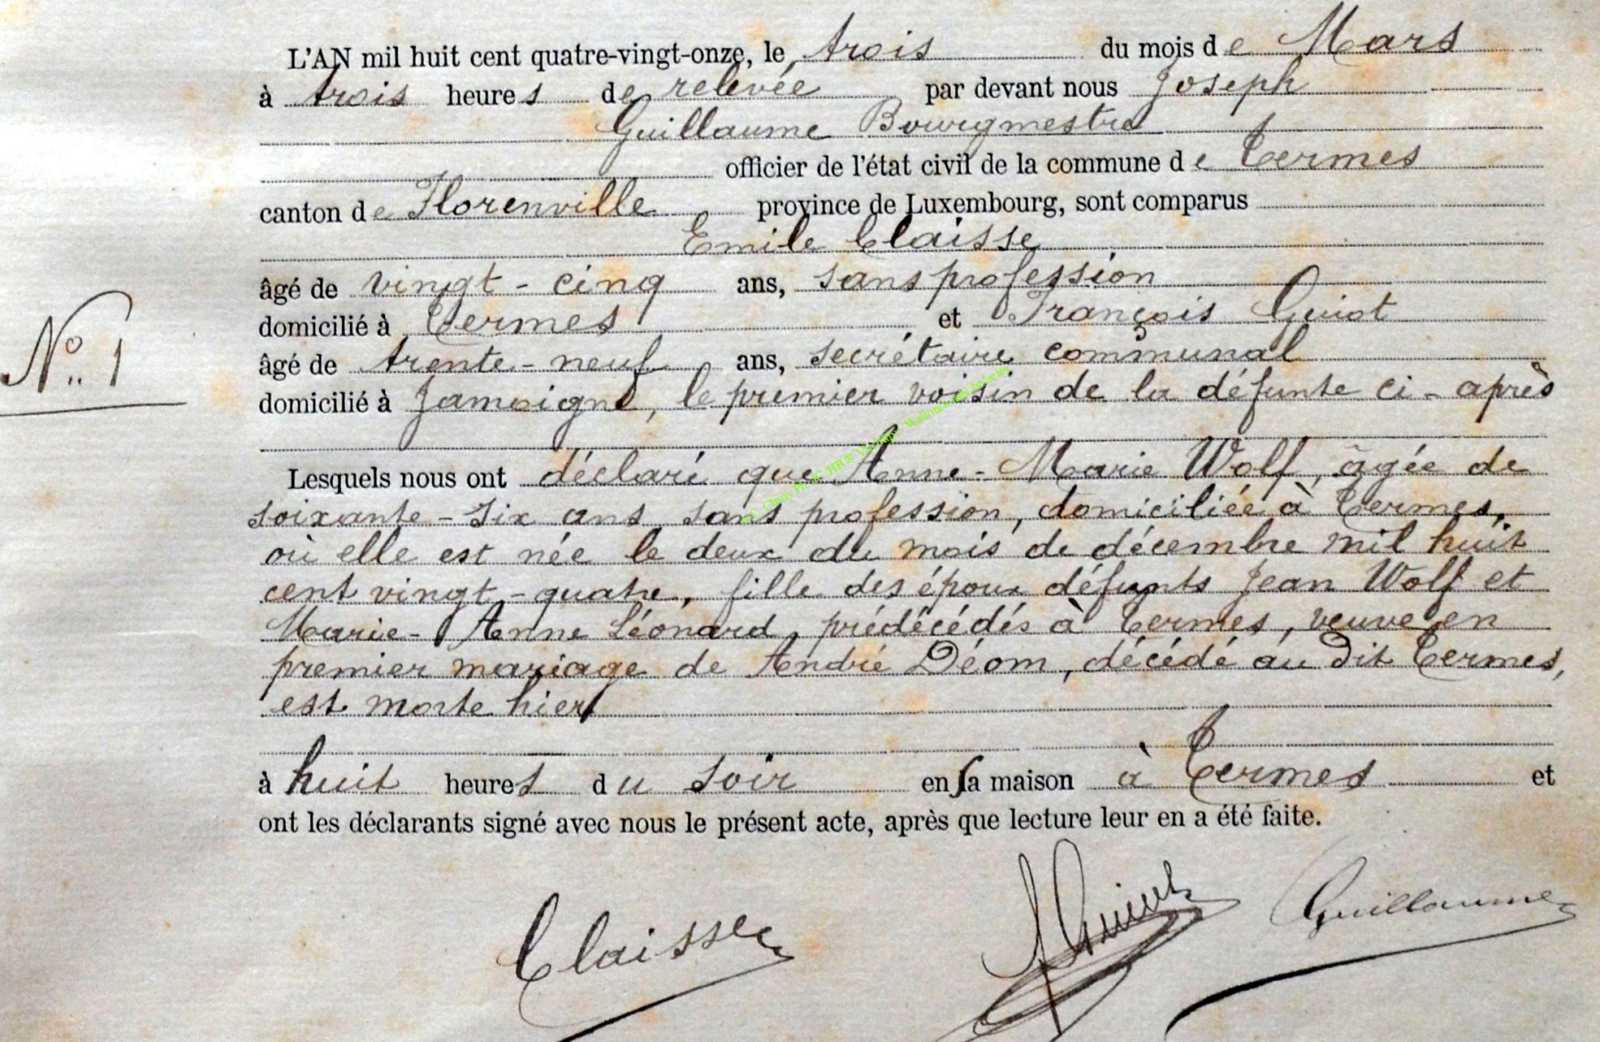 L'AN mil huit cent quatre-vingt-onze, le trois du mois de Mars
à trois heures de relevée par devant nous Joseph
Guillaume Bourgmestre
officier de l'état civil de la commune de Termes
canton de Florenville province de Luxembourg, sont comparus
Emile Claisse
âgé de vingt-cinq ans, sans profession
domicilié à Termes et François Guiot
âgé de trente-neuf ans, secrétaire communal
domicilié à Jamoigne, le premier voisin de la défunte ci-après
N° 1
Lesquels nous ont déclaré que Anne-Marie Wolf, âgée de
soixante-six ans, sans profession, domiciliée à Termes,
où elle est née le deux du mois de décembre mil huit
cent vingt-quatre, fille des époux défunts Jean Wolf et
Marie-Anne Léonard, prédécédés à Termes, veuve en
premier mariage de André Déom, décédé au dit Termes,
est morte hier
à huit heures du soir en sa maison à Termes et
ont les déclarants signé avec nous le présent acte, après que lecture leur en a été faite.
Claisse F Guiot Guillaume